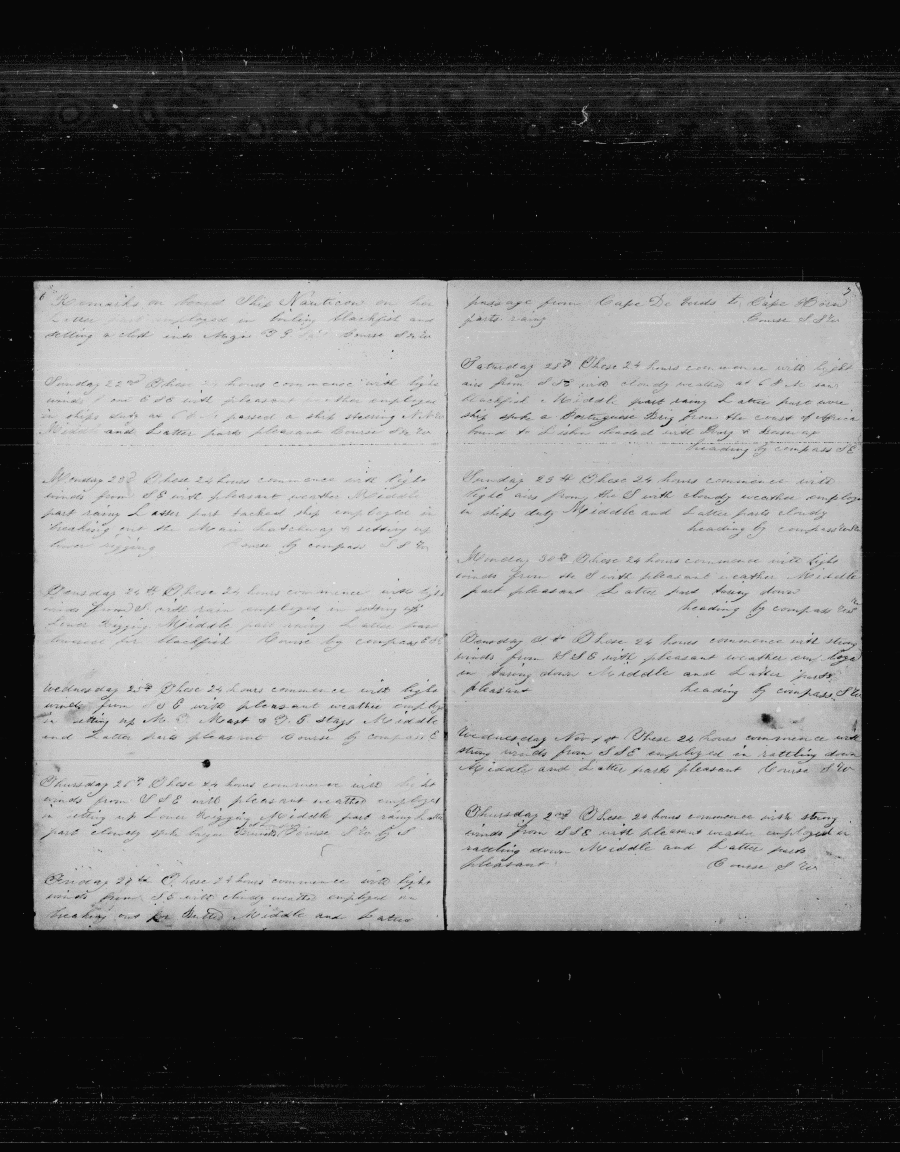 6
Remarks on board Ship Nauticon on her
employed in boiling blackfish and
Course SW
Sunday 22nd These 24 hours commence with light
winds from ESE with pleasant weather employed
in ships duty at 6 passed a ship steering NNW
Middle and Latter parts pleasant Course SW
Monday 23d These 24 hours commence with light
winds from SE with pleasant weather Middle
part rainy Latter part tacked ship employed in
breaking out the Main Hatchway & setting up
lower rigging Course by compass S S W
24th These 24 hours commence with light
winds from S with rain employed in setting up
Lower Rigging Middle part rainy Latter part
for blackfish Course by compass
Wednesday 25th These 24 hours commence with light
winds from S S E with pleasant weather employed
in setting up Mast & stays Middle
and Latter parts pleasant Course by compass E
Thursday 26th These 24 hours commence with light
winds from S S E with pleasant weather employed
in setting up Lower Rigging Middle part rainy Latter
part cloudy spoke Course S W by S
Friday 27th These 24 hours commence with light
winds from SE with cloudy weather employed in
breaking out for Middle and Latter
7
passage from Cape De Verds to Cape Horn
parts rainy Course S S W
Saturday 28th These 24 hours commence with light
airs from S S E with cloudy weather at 6 P M saw
blackfish Middle part rainy Latter part wore
ship spoke a Portuguese Brig from the coast of Africa
bound to Lisbon loaded with Ivory & Beeswax
heading by compass S E
Sunday 29th These 24 hours commence with
light airs from the S with cloudy weather employed
in ships duty Middle and Latter parts cloudy
heading by compass
Monday 30th These 24 hours commence with light
winds from the S with pleasant weather Middle
part pleasant Latter part taring down
heading by compass
These 24 hours commence with strong
winds from S S E with pleasant weather employed
in taring down Middle and Latter parts
pleasant heading by compass S W
Wednesday Nov 1st These 24 hours commence with
strong winds from S S E employed in rattling down
Middle and Latter parts pleasant Course S W
Thursday 2nd These 24 hours commence with strong
winds from S S E with pleasant weather employed in
rattling down Middle and Latter parts
pleasant Course S W